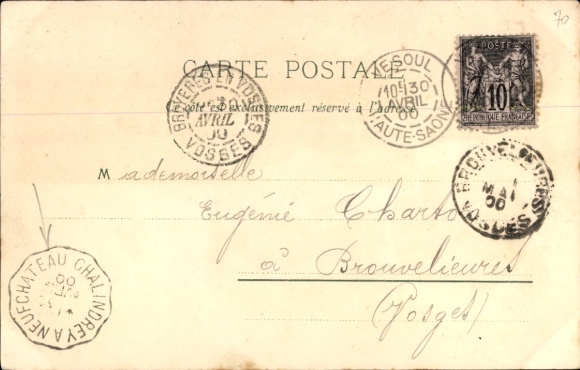 70
CARTE POSTALE
Ce côté est exclusivement réservé à l'adresse
POSTE
10
REPUBLIQUE FRANCAISE
VESOUL
30
AVRIL
00
HAUTE-SAONE
BRUYERES EN VOSGES
AVRIL
00
VOSGES
BROUVELIEURES
MAI
00
VOSGES
Mademoiselle
Eugénie Charton
à Brouvelieures
(Vosges)
NEUFCHATEAU CHALINDREY A
00